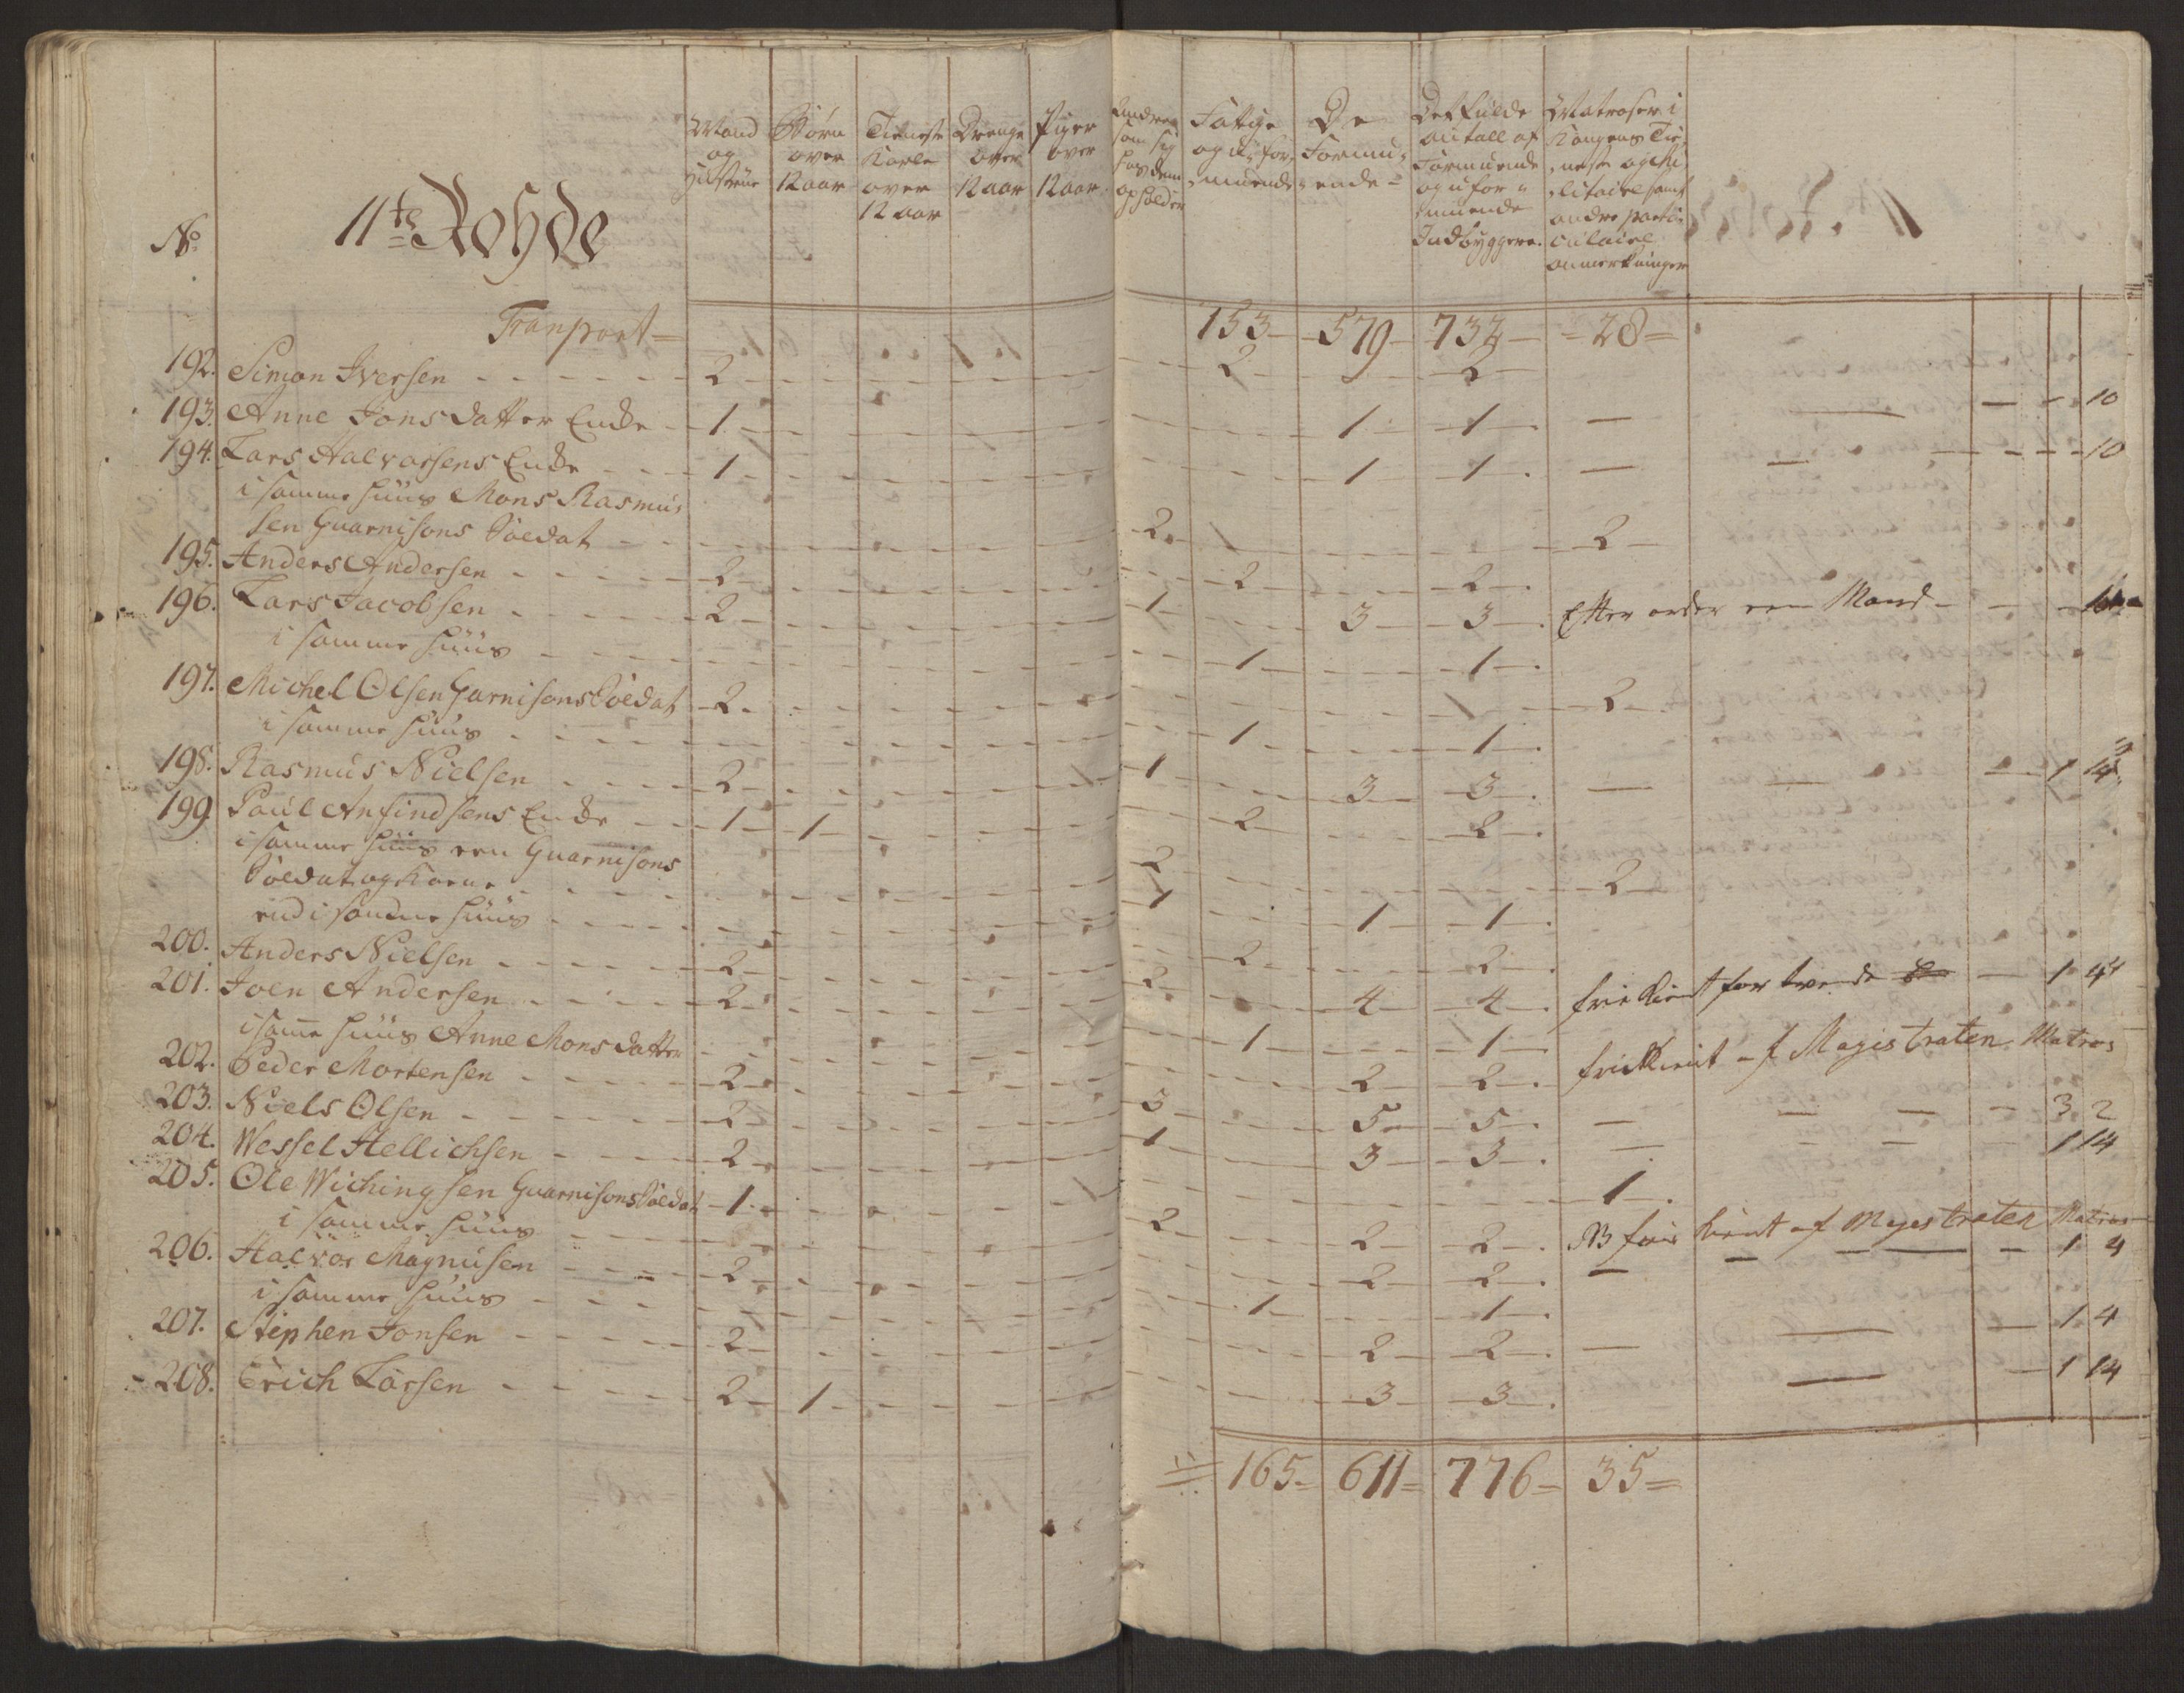 No
11te Rohde
Mand og Hustrue
Børn over 12 aar
Tieneste Karle over 12 aar
Drenge over 12 aar
Piger over 12 aar
Andre som sig hos dem opholder
Fattige og u-formuende
De Formuende
Det fulde antall af Formuende og uformuende Indbyggere.
Matroser i Kongens Tieneste og Militaire samt andre particulaire anmerkninger
Transport = 153 579 732 28
192. Simon Iversen 2 2 2
193. Anne Jonsdatter Enke 1 1 1 10
194. Lars Halvorsens Enke 1 1 1 10
i samme huus Mons Rasmus
sen Guarnisons Soldat 2 2
195. Anders Andersen 2 2 2
196. Lars Jacobsen 2 1 3 3 Efter order een Mand
i samme huus 1 1
197. Michel Olsen Garnisons Soldat 2 2
i samme huus 1 1
198. Rasmus Nielsen 2 1 3 3 1 14
199 Paul Anfindsens Enke 1 1 2 2
i samme huus een Guarnisons
Soldat og Kone 2 2
end i samme huus 1 1 1
200. Anders Nielsen 2 2 2
201. Joen Andersen 2 2 4 4 frie Kient for tvende 1 4
i same huus Anne Mons datter 1 1
202. Peder Mortensen 2 2 2 frie Kient af Magistraten Matros
203. Niels Olsen 2 3 5 5 3 2
204. Wessel Hellichsen 2 1 3 3 1 14
205. Ole Wichingsen Guarnisons Soldat 1 1
i samme huus 2 2 2 NB frie Kient af Magestraten Matros
206. Halvor Magnusen 2 2 2 1 4
i samme huus 1 1
207. Stephen Jonsen 2 2 2 1 4
208. Erich Larsen 2 1 3 3 1 14
165 611 776 35